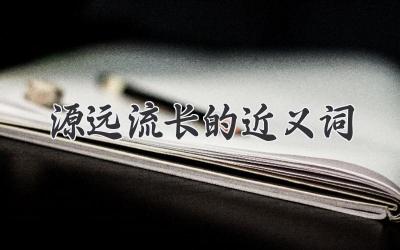 源远流长的近义词